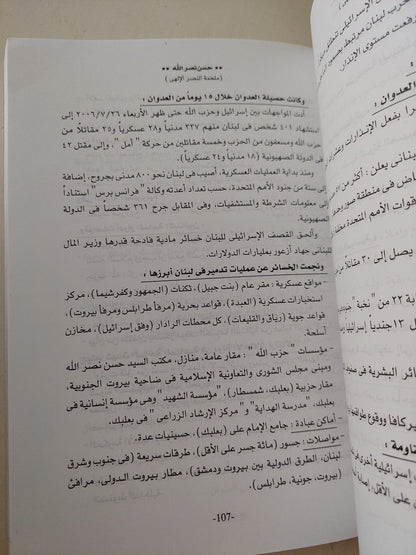 ** حسن نصر الله **
(ملحمة النصر الإلهى)
وكانت حصيلة العدوان خلال ١٥ يوماً من العدوان :
أدت المواجهات بين إسرائيل وحزب الله حتى ظهر الأربعاء ٢٠٠٦/٧/٢٦ إلى
استشهاد ٤٠١ شخص فى لبنان منهم ٣٣٧ مدنياً و٢٨ عسكرياً و٢٥ مقاتلاً من
حزب الله ومسعفون من الحزب و٦ مقاتلين من حركة "أمل"، وإلى مقتل ٤٢
فى الدولة الصهيونية (١٨ مدنياً و٢٤ عسكرياً).
ومنذ بداية العمليات العسكرية، أصيب فى لبنان نحو ٨٠٠ مدنى بجروح، إضافة
إلى ستة من جنود الأمم المتحدة، حسب تعداد أعدته وكالة "فرانس برس" استناداً
إلى معلومات الشرطة والمستشفيات، وفى المقابل جرح ٣٦١ شخصاً فى الدولة
الصهيونية.
وألحق القصف الإسرائيلى للبنان خسائر مادية فادحة قدرها وزير المال
اللبنانى جهاد أزعور بمليارات الدولارات.
ونجمت الخسائر عن عمليات تدمير فى لبنان أبرزها :
- مواقع عسكرية : مقر عام (بنت جبيل)، ثكنات (الجمهور وكفرشيما)، مركز
استخبارات عسكرية (العبدة)، قواعد بحرية (مرفأ طرابلس ومرفأ بيروت)،
قواعد جوية (رياق والقليعات)، كل محطات الرادار (وفق إسرائيل)، مخازن
أسلحة.
- مؤسسات "حزب الله" : مقار عامة، منازل، مكتب السيد حسن نصر الله
ومبنى مجلس الشورى والتعاونية الإسلامية فى ضاحية بيروت الجنوبية،
مقار حزبية (بعلبك، شمسطار)، "مؤسسة الشهيد" وهى مؤسسة إنسانية فى
بعلبك، "مدرسة الهداية" و" مركز الإرشاد الزراعى" فى بعلبك.
- أماكن عبادة : جامع الإمام على (بعلبك)، حسينيات عدة.
- مواصلات : جسور (مائة جسر على الأقل)، طرقات سريعة (فى جنوب وشرق
لبنان، الطرق الدولية بين بيروت ودمشق)، مطار بيروت الدولى، مرافئ
(بيروت، جونية، طرابلس).
-107-
الإسرائيلى
حزب لبنان مرتبط
رفعت مستوى الإنذار
العدوان :
بفعل الإنذارات
لبنانى يعلن : أكثر من
فى منطقة صور
قوات الأمم المتحدة
يصل إلى ٣٠ مقاتلاً
٢٢ من "نخبة"
١٣ جندياً إسرائيلياً
خسائر البشرية فى
ووقوع
مقاومة :
إسرائيلية أخرى
على الأقل، إصابة